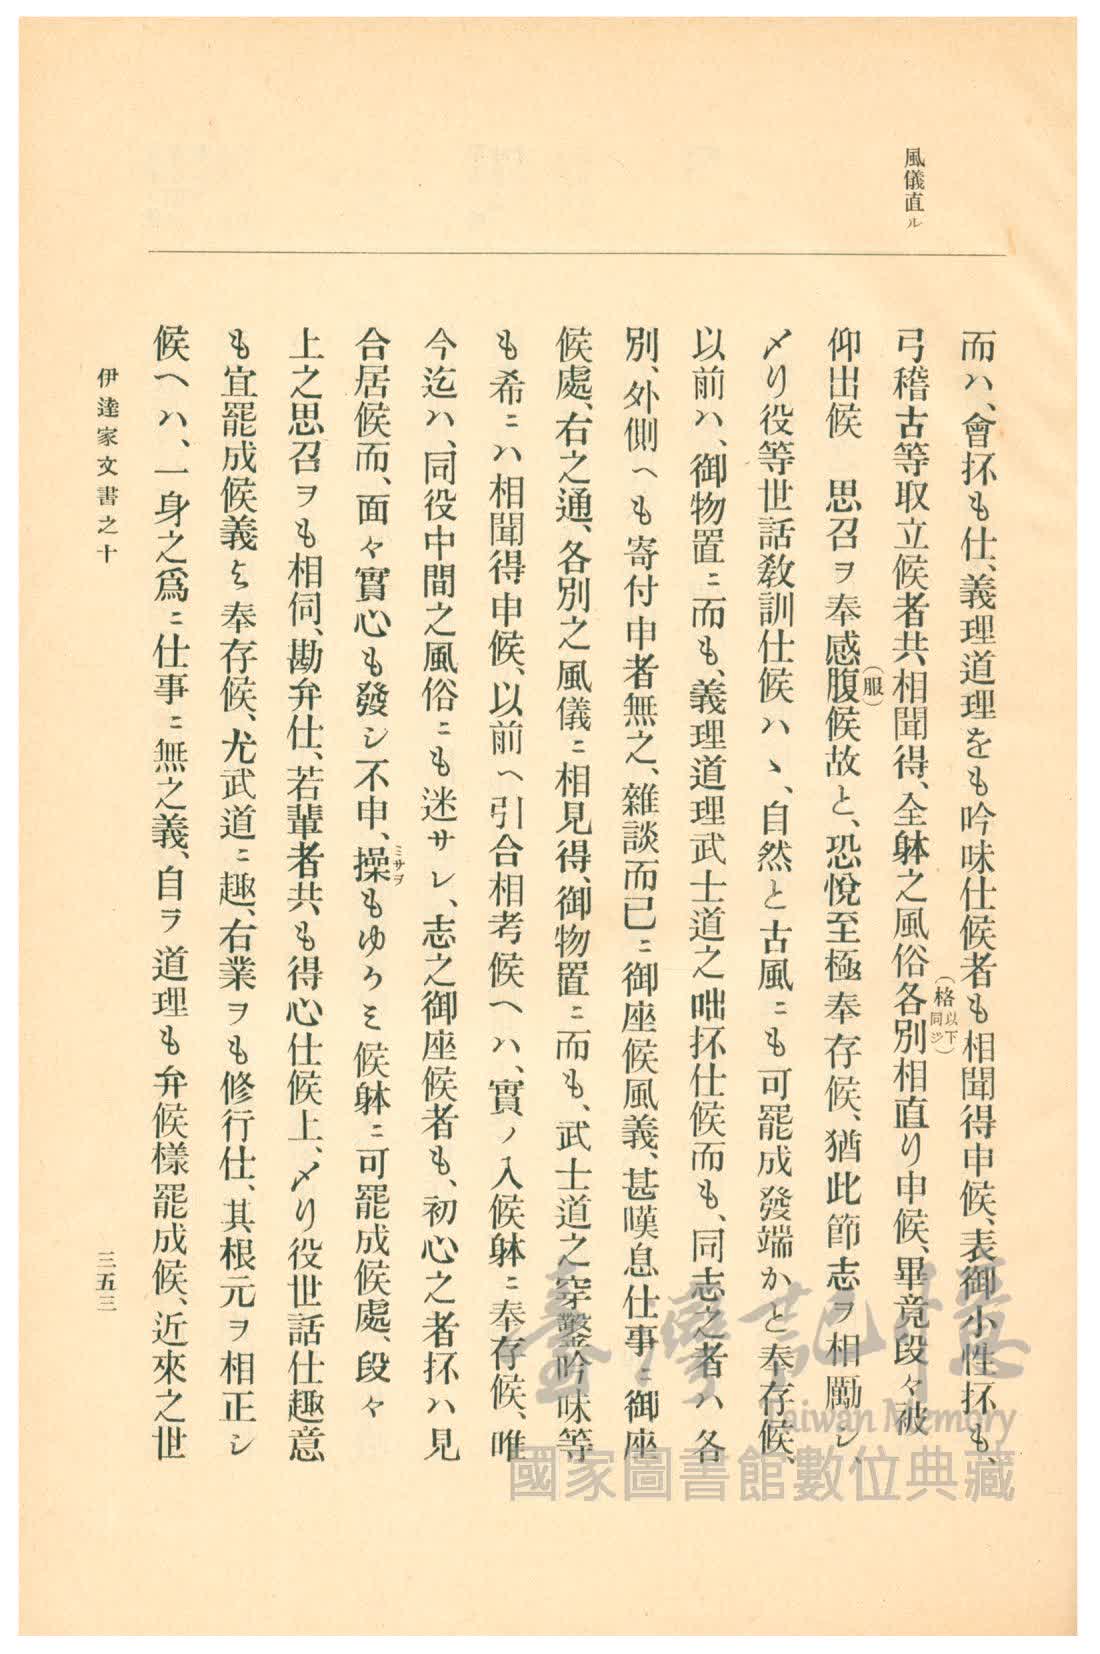 風儀直ル
而ハ、會抔も仕、義理道理をも吟味仕候者も相聞得申候、表御小性抔も、
弓稽古等取立候者共相聞得、全躰之風俗各別(格以下同シ)相直り申候、畢竟段々被
仰出候　思召ヲ奉感腹(服)候故と、恐悅至極奉存候、猶此節志ヲ相勵シ、
〆り役等世話敎訓仕候ハヽ、自然と古風ニも可罷成發端かと奉存候、
以前ハ、御物置ニ而も、義理道理武士道之咄抔仕候而も、同志之者ハ各
別、外側へも寄付申者無之、雜談而已ニ御座候風義、甚嘆息仕事ニ御座
候處、右之通、各別之風儀ニ相見得、御物置ニ而も、武士道之穿鑿吟味等
も希ニハ相聞得申候、以前へ引合相考候ヘハ、實ノ入候躰ニ奉存候、唯
今迄ハ、同役中間之風俗ニも迷サレ、志之御座候者も、初心之者抔ハ見
合居候而、面々實心も發シ不申、操(ミサヲ)もゆるミ候躰ニ可罷成候處、段々
上之思召ヲも相伺、勘弁仕、若輩者共も得心仕候上、〆り役世話仕趣意
も宜罷成候義与奉存候、尤武道ニ趣、右業ヲも修行仕、其根元ヲ相正シ
候ヘハ、一身之爲ニ仕事ニ無之義、自ラ道理も弁候樣罷成候、近來之世
伊達家文書之十
三五三
臺灣記憶
Taiwan Memory
國家圖書館數位典藏